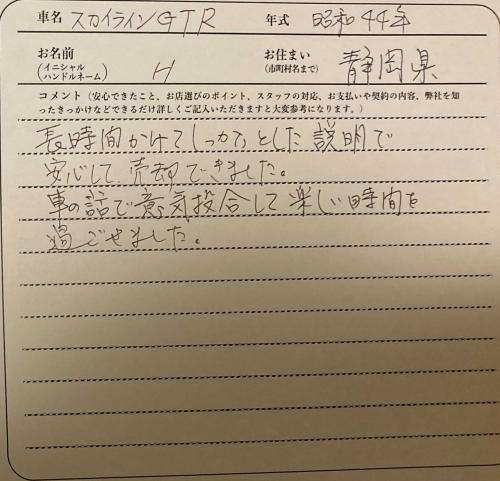 車名 スカイラインGTR 年式 昭和44年
お名前 (イニシャル ハンドルネーム) H お住まい (市町村名まで) 静岡県
コメント（安心できたこと、お店選びのポイント、スタッフの対応、お支払いや契約の内容、弊社を知ったきっかけなどできるだけ詳しくご記入いただきますと大変参考になります。）
長時間かけてしっかりとした説明で
安心して売却できました。
車の話で意気投合して楽しい時間を
過ごせました。